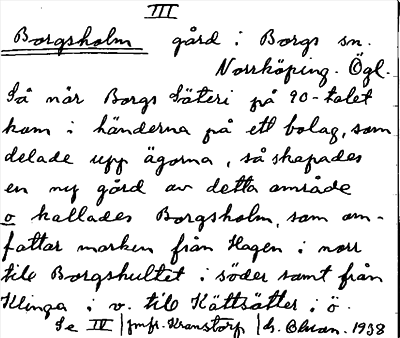 III
Borgsholm gård i Borgs sn.
Norrköping. Ögl.
Så när Borgs Säteri på 90-talet
kom i händerna på ett bolag, som
delade upp ägorna, så skapades
en ny gård av detta område
o kallades Borgsholm, som om-
fattar marken från Hagen i norr
till Borgshultet i söder samt från
Klinga i v. till Kättsätter i ö.
Se IV | Jmfr. Kranstorp | 1938